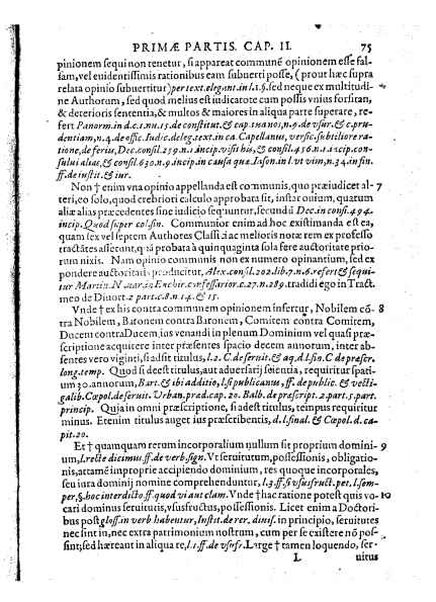 PRIMÆ PARTIS. CAP. II. 75
pinionem sequi non tenetur, si appareat communē opinionem esse fal-
sam, vel euidentissimis rationibus eam subuerti posse, (prout hæc supra
relata opinio subuertitur) per text. elegant. in l.1.§. sed neque ex multitudi-
ne Authorum, sed quod melius est iudicatote cum possit vnius forsitan,
& deterioris sententia, & multos & maiores in aliqua parte superare, re-
fert Panorm. in d.c.1.nu.15. de constitut. & cap. tua nos, n.9. de vsur. & c. pru-
dentiam, n.4. de offic. Iudic. deleg. text. in ca. Capellanus, versic. subtiliore ra-
tione, de feriis, Dec. consil.259. n.1. incip. visis his, & consil.456. n.11. incip. con-
sului alias, & consil.630. n.9. incip. in causa quæ. Iason. in l. vt vim, n.34. in fin.
ff. de iustit. & iur.
Non † enim vna opinio appellanda est communis, quo præiudicet al- 7
teri, eo solo, quod crebriori calculo approbata sit, instar ouium, quarum
aliæ alias præcedentes sine iudicio sequūtur, secundū Dec. in consil.494.
incip. Quod super col. fin. Communior enim ad hoc existimanda est ea,
quam sex vel septem Authores Classici ac melioris notæ ex professo
tractātes asserunt, quā probata à quinquaginta sola fere auctoritate prio-
rum nixis. Nam opinio communis non ex numero opinantium, sed ex
pondere auctoritatis producitur, Alex. consil.202. lib.7. n.6. refert & sequi-
tur Martin. Nauar. in Enchir. confessarior. c.27. n.289. tradidi ego in Tract.
meo de Diuort. 2 part. c.8. n.14. & 15.
Vnde † ex his contra communem opinionem infertur, Nobilem cō- 8
tra Nobilem, Baronem contra Baronem, Comitem contra Comitem,
Ducem contra Ducem, ius venandi in plenum Dominium vel quasi præ-
scriptione acquirere inter præsentes spacio decem annorum, inter ab-
sentes vero viginti, si adsit titulus, l.2. C. de seruit. & aq. d. l. fin. C. de præscr.
long. temp. Quod si deest titulus, aut aduersarij scientia, requiritur spatiū
um 30. annorum, Bart. & ibi additio, l. si publicanus, ff. de public. & vecti-
galib. Cœpol. de seruit. Vrban. præd. cap.20. Balb. de præscript. 2. part. 3. part.
princip. Quia in omni præscriptione, si adest titulus, tempus requiritur
minus. Etenim titulus auget ius præscribentis, d. l. final. & Cœpol. d. ca-
pit. 20.
Et † quamquam rerum incorporalium nullum sit proprium domini- 9
um, l. recte dicimus. ff. de verb. sign. Vt seruitutum, possessionis, obligatio-
nis, attamē improprie accipiendo dominium, res quoque incorporales,
seu iura dominij nomine comprehenduntur, l.3. ff. si vsusfruct. pet. l. sem-
per, §. hoc interdicto ff. quod vi aut clam. Vnde † hac ratione potest quis vo- 10
cari dominus seruitutis, vsusfructus, possessionis. Licet enim a Doctori-
bus post gloss. in verb. habentur, Instit. de rer. diuis. in principio, seruitutes
nec sint in, nec extra patrimonium nostrum, cum per se existere nō pos-
sint; sed hæreant in aliqua re, l.1. ff. de vsufr. Large † tamen loquendo, ser-
L uitus